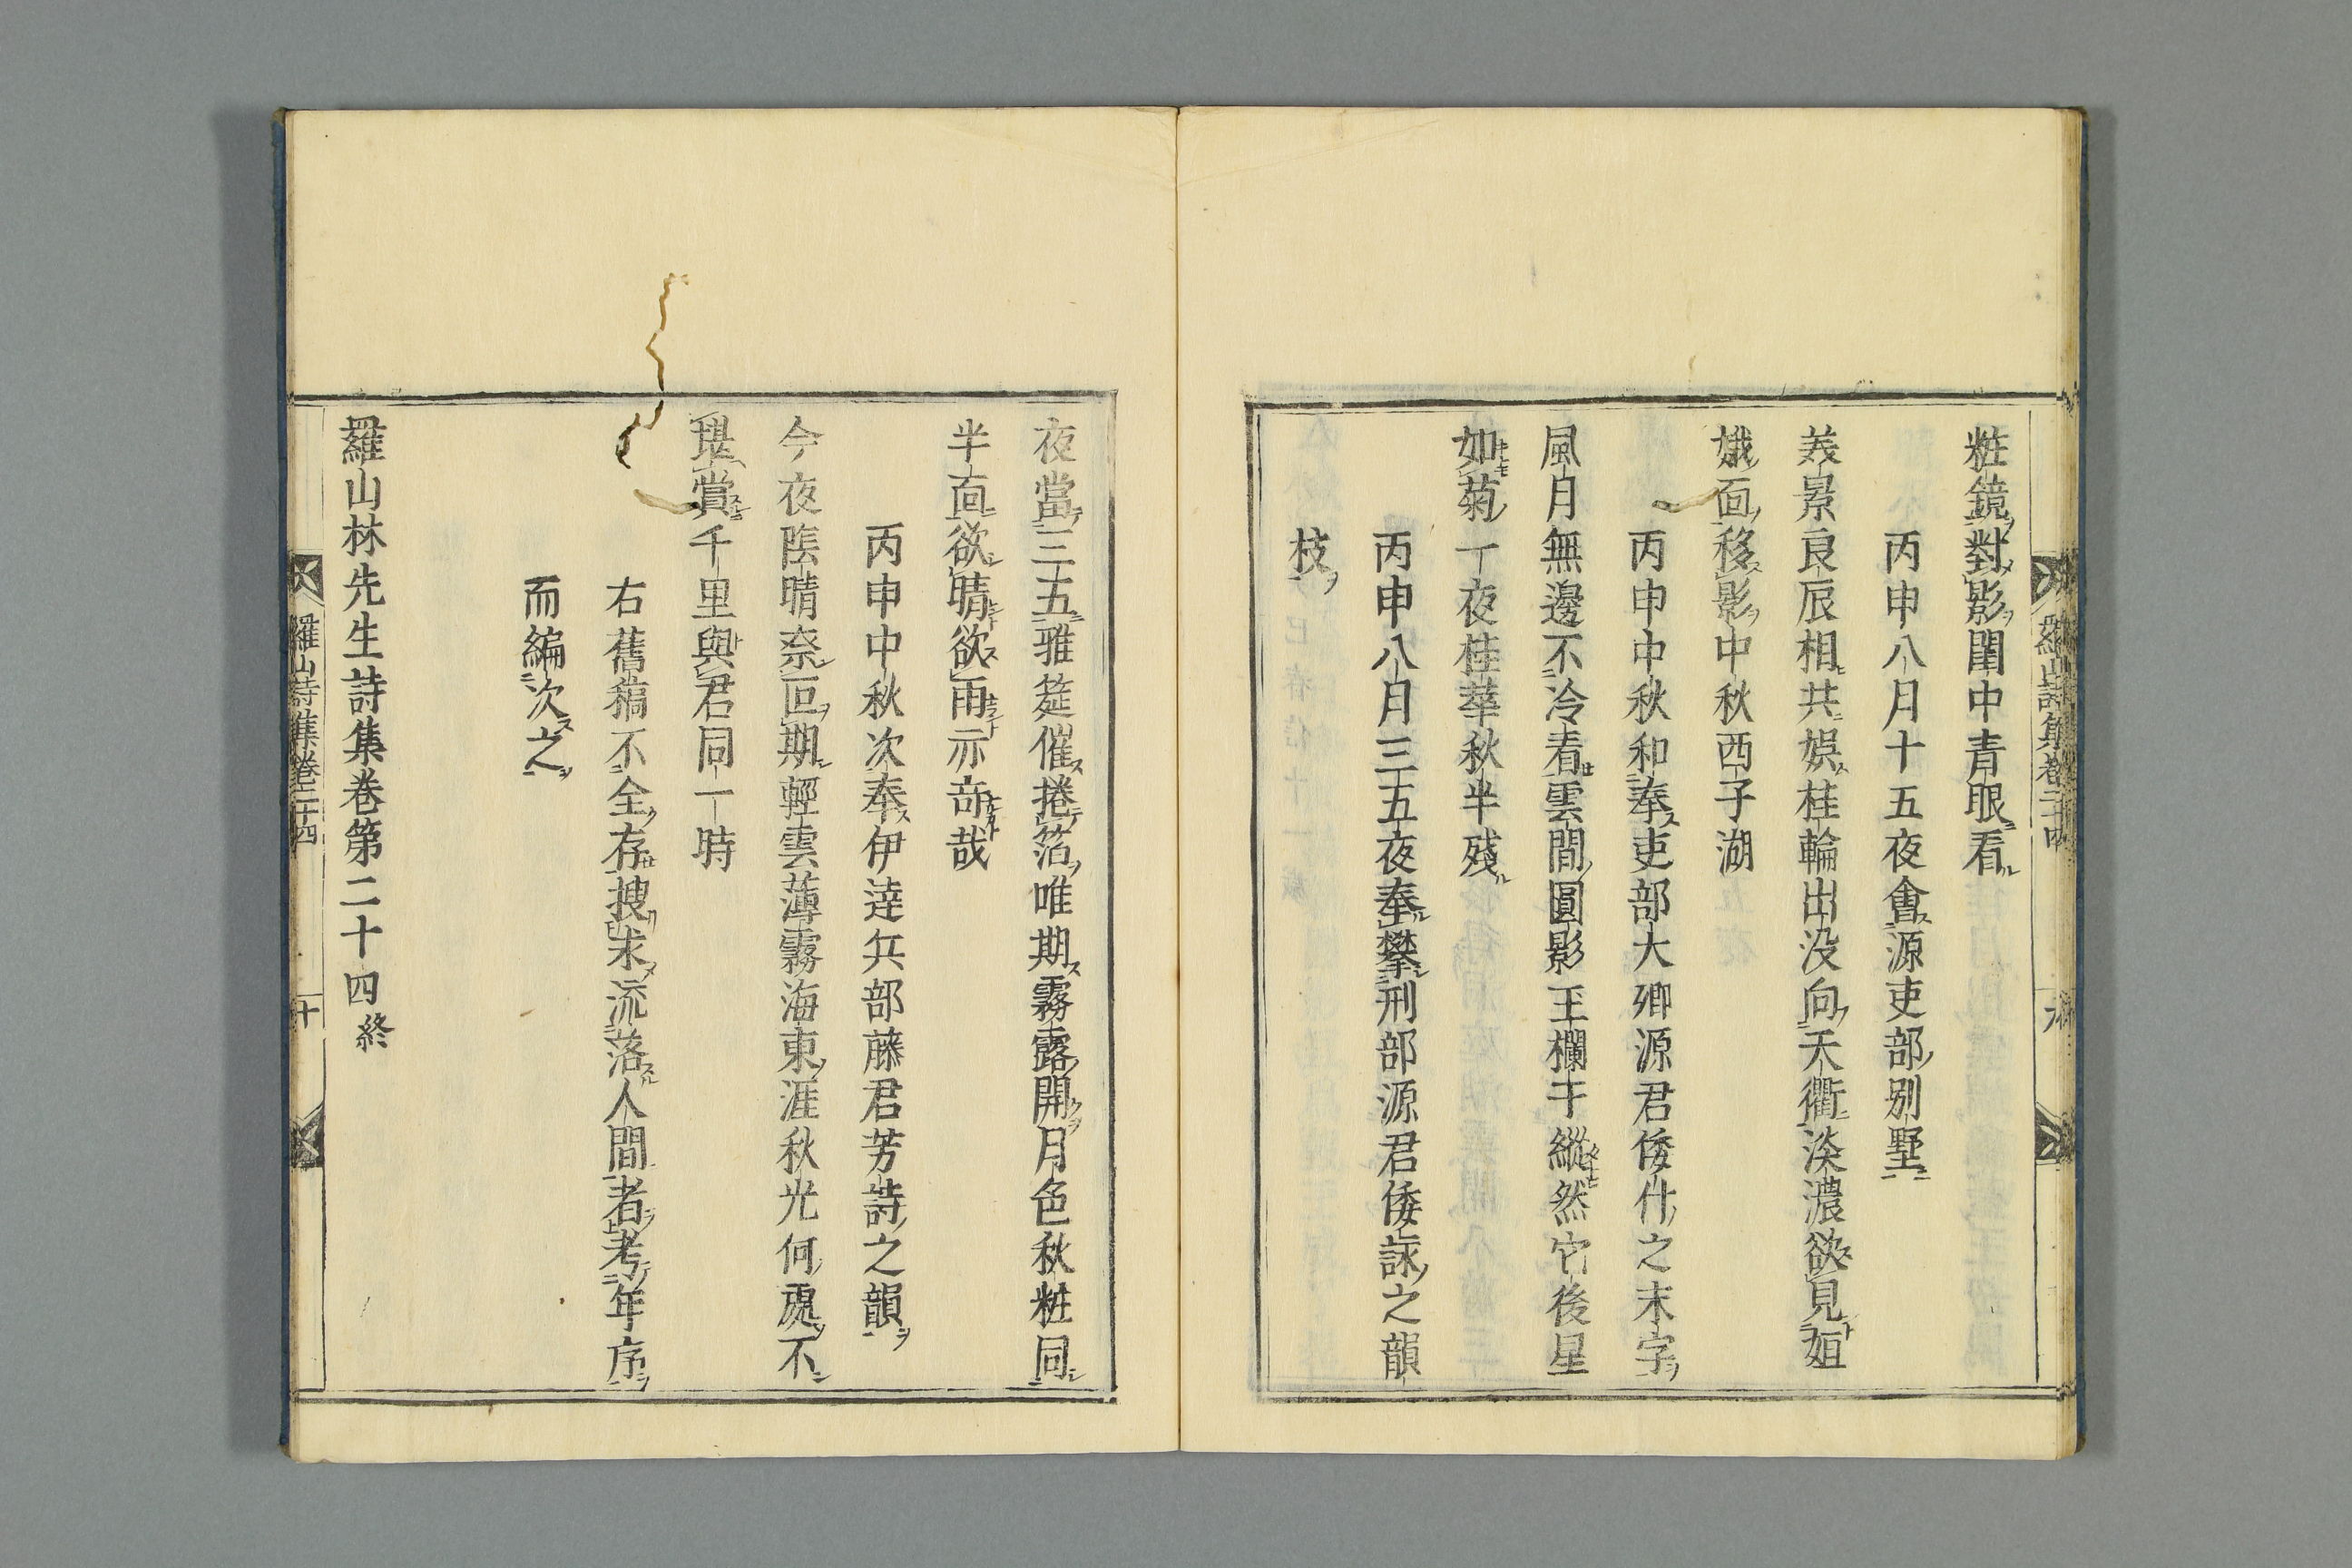 粧鏡對影閨中青眼看
丙申八月十五夜會源吏部別墅
羙景良辰相共娯桂輪出没向天衢淡濃欲見姮
娥面移影中秋西子湖
丙申中秋和奉吏部大卿源君倭什之末字
風月無邊不冷看雲間圓影玉欄干縱然它後星
如菊一夜桂華秋半殘
丙申八月三五夜奉攀刑部源君倭詠之韻
枝
羅山詩集卷二十四
九
夜當三五雅筵催捲箔唯期霧露開月色秋粧同
半面欲晴欲雨亦竒哉
丙申中秋次奉伊逵兵部藤君芳詩之韻
今夜陰晴奈叵期輕雲薄霧海東涯秋光何處不
堪賞千里與君同一時
右舊稿不全存搜求流落人間者考年序
而編次之
羅山林先生詩集卷第二十四終
羅山詩集卷二十四
十